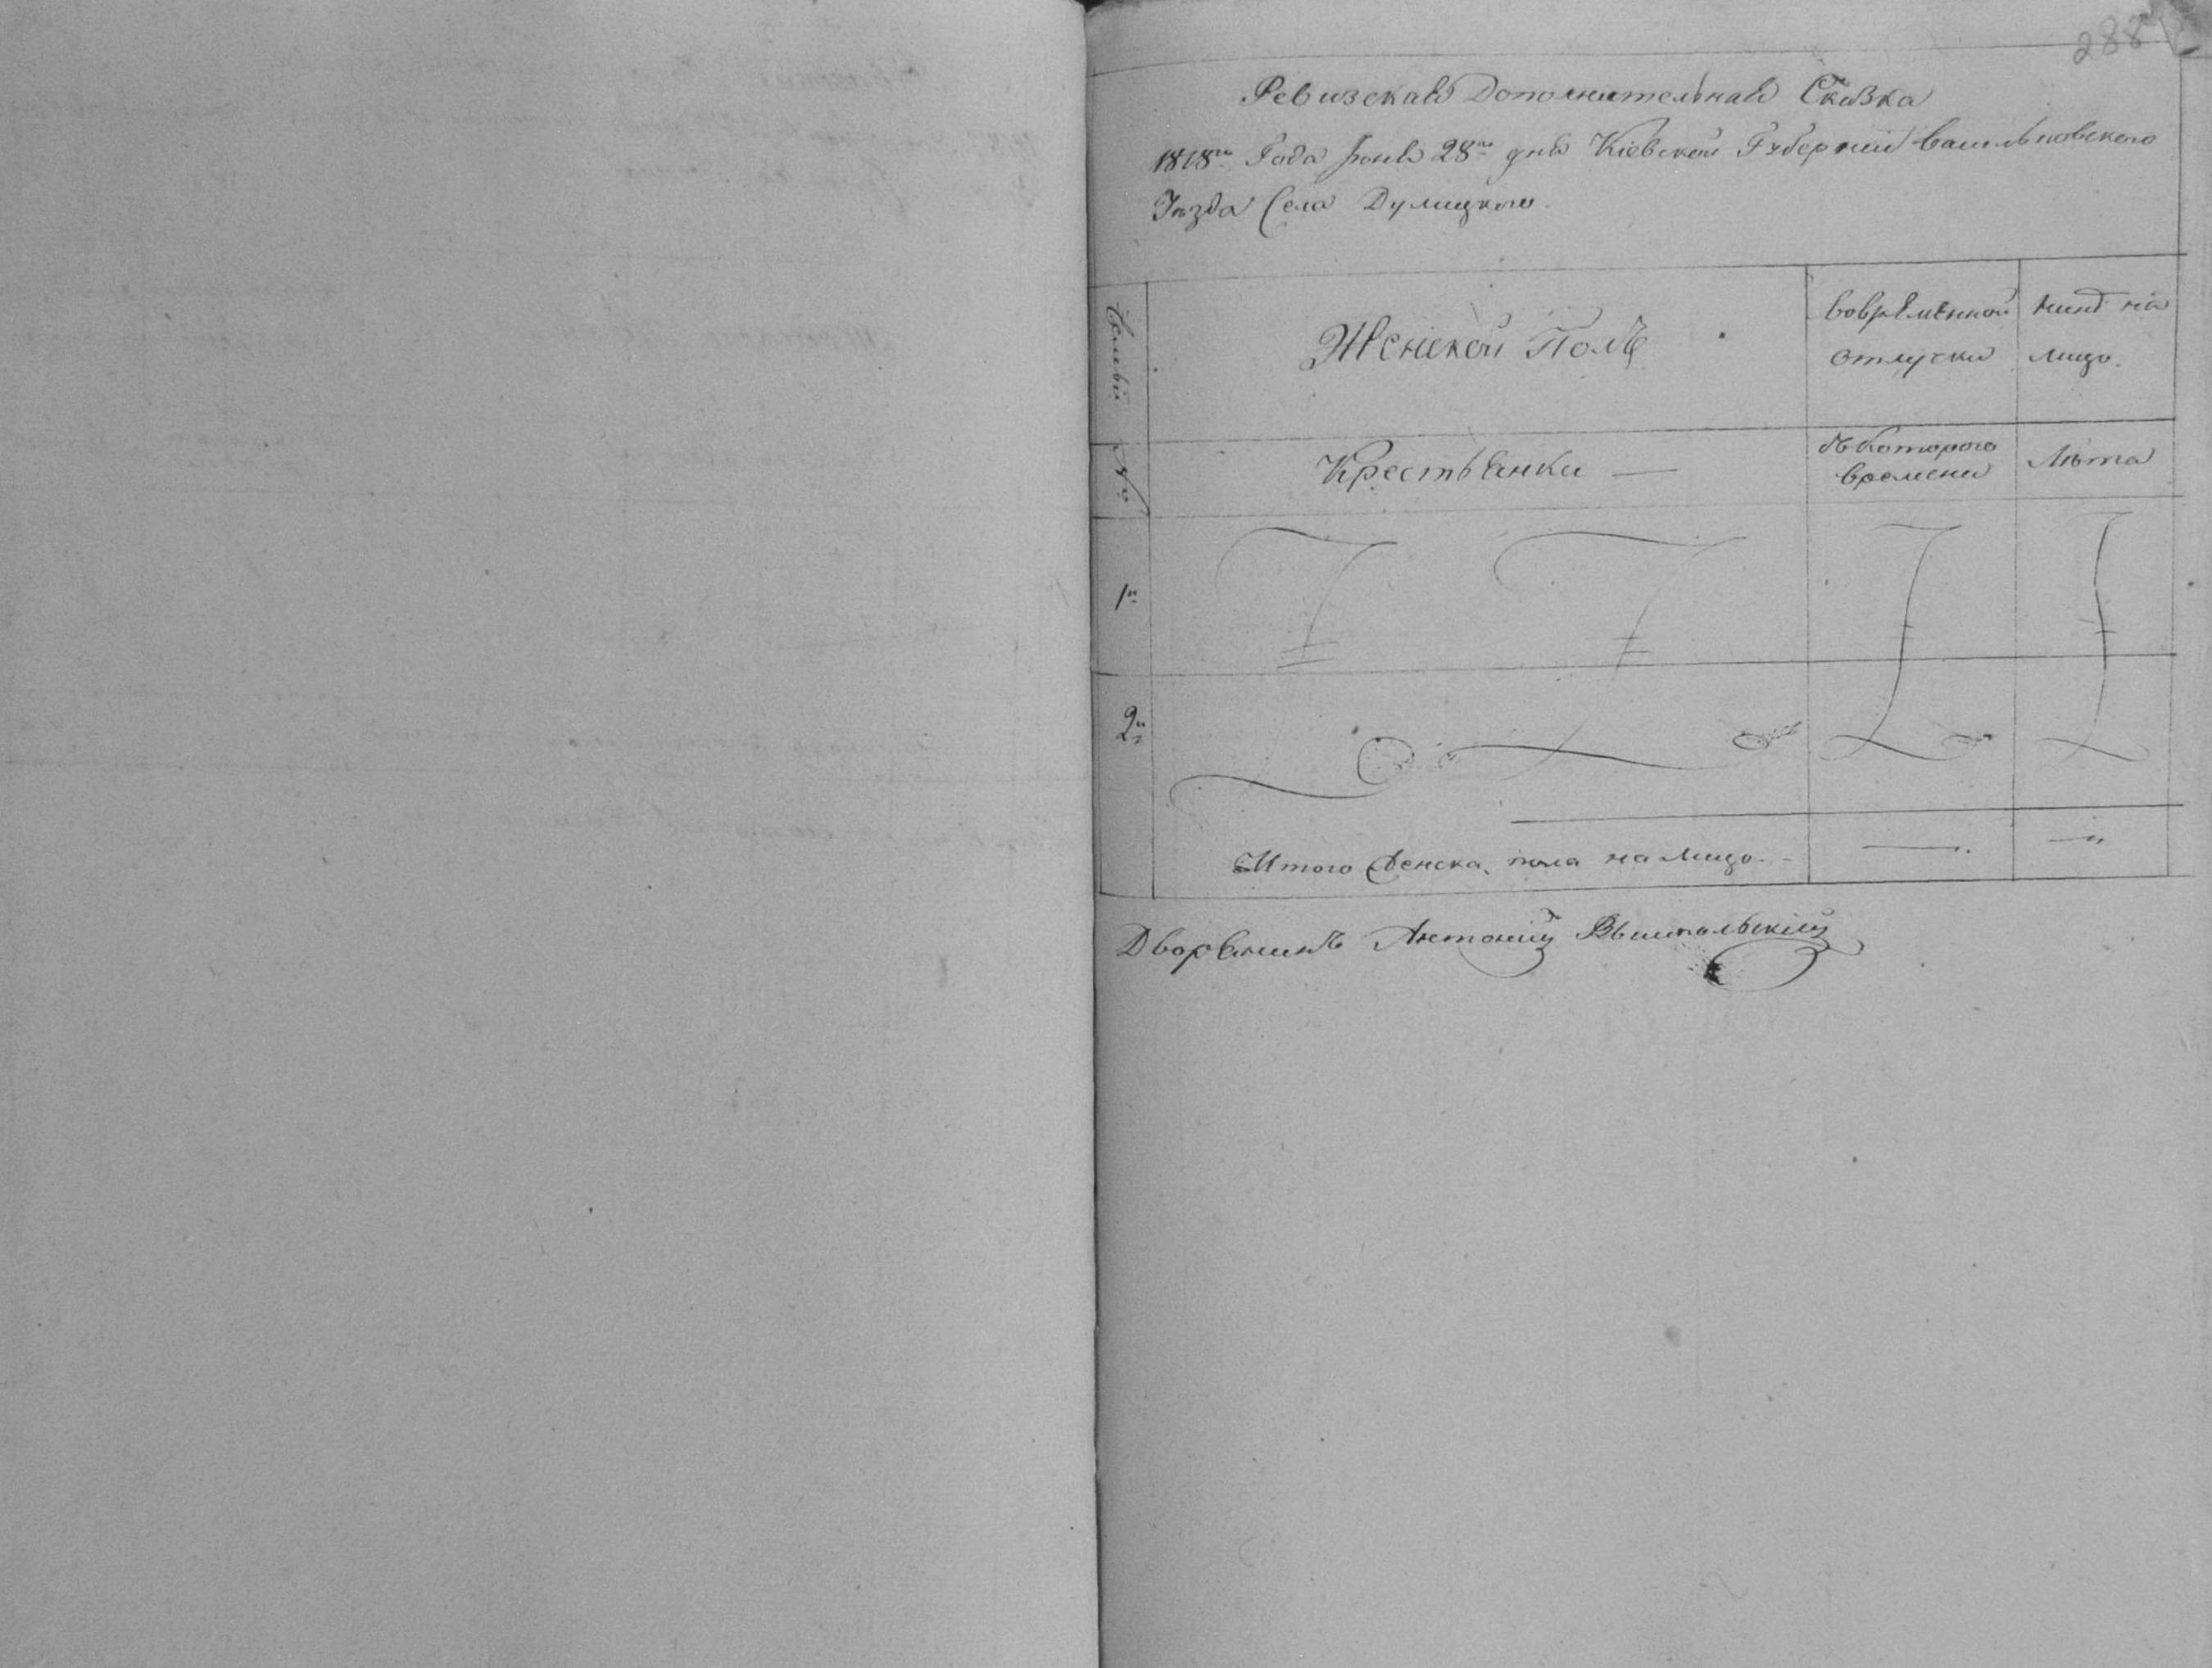 288
Ревизская Дополнительная Сказка
1818го Года Іюня 28го дня Кіевской Губерніи васильковского
Уѣзда Села Дулицкого
Семьи
Женской Полъ
вовременной
отлучки
нинѣ на
лицо.
№
Крестьянки —
съ Которого
времени
Лѣта
1й
2й
Итого Женска. пола на лицо -
Дворянинъ Антоній